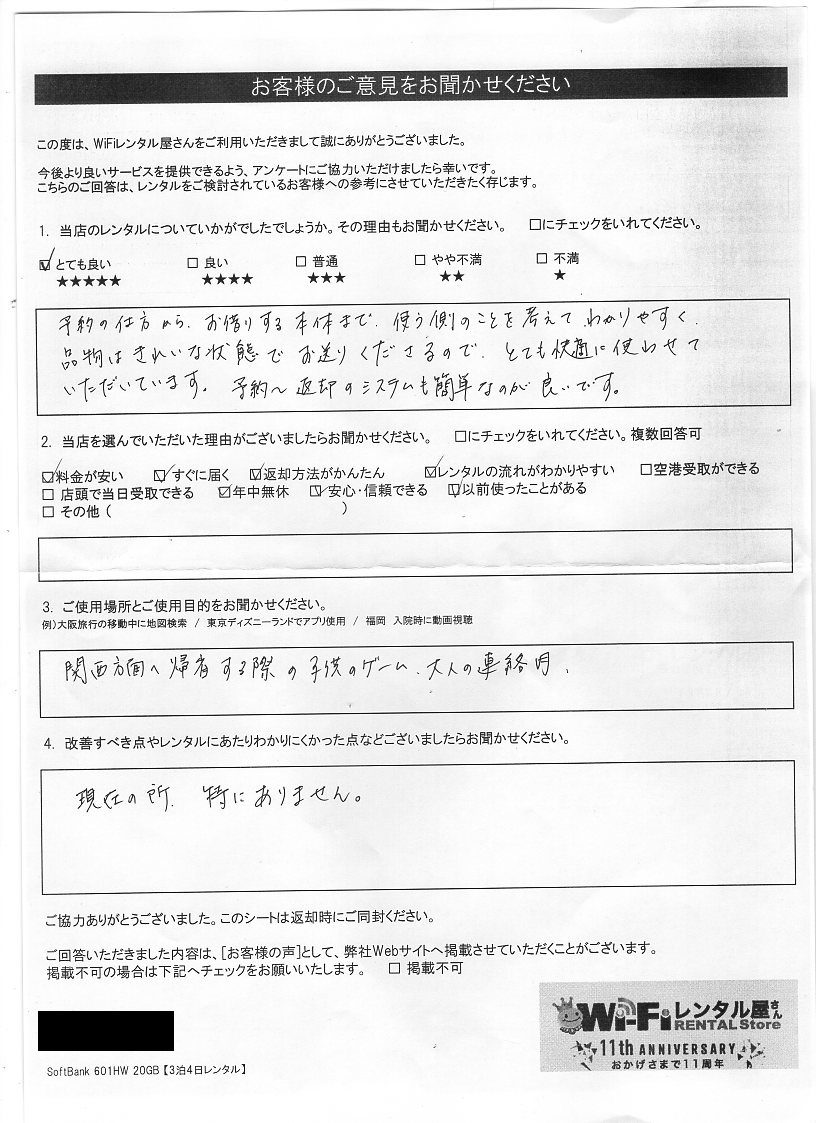 お客様のご意見をお聞かせください
この度は、WiFiレンタル屋さんをご利用いただきまして誠にありがとうございました。
今後より良いサービスを提供できるよう、アンケートにご協力いただけましたら幸いです。
こちらのご回答は、レンタルをご検討されているお客様への参考にさせていただきたく存じます。
1. 当店のレンタルについていかがでしたでしょうか。その理由もお聞かせください。 □にチェックをいれてください。
☑ とても良い □ 良い □ 普通 □ やや不満 □ 不満
★★★★★ ★★★★ ★★★ ★★ ★
予約の仕方から、お借りする本体まで、使う側のことを考えて、わかりやすく、
品物はきれいな状態でお送りくださるので、とても快適に使わせて
いただいています。予約〜返却のシステムも簡単なのが良いです。
2. 当店を選んでいただいた理由がございましたらお聞かせください。 □にチェックをいれてください。複数回答可
☑料金が安い ☑すぐに届く ☑返却方法がかんたん ☑レンタルの流れがわかりやすい □空港受取ができる
□ 店頭で当日受取できる ☑年中無休 ☑安心・信頼できる ☑以前使ったことがある
□ その他 ( )
3. ご使用場所とご使用目的をお聞かせください。
例)大阪旅行の移動中に地図検索 / 東京ディズニーランドでアプリ使用 / 福岡 入院時に動画視聴
関西方面へ帰省する際の子供のゲーム、大人の連絡用、
4. 改善すべき点やレンタルにあたりわかりにくかった点などございましたらお聞かせください。
現在の所、特にありません。
ご協力ありがとうございました。このシートは返却時にご同封ください。
ご回答いただきました内容は、[お客様の声]として、弊社Webサイトへ掲載させていただくことがございます。
掲載不可の場合は下記へチェックをお願いいたします。 □ 掲載不可
Wi-Fiレンタル屋さん
RENTAL Store
11th ANNIVERSARY
おかげさまで11周年
SoftBank 601HW 20GB【3泊4日レンタル】